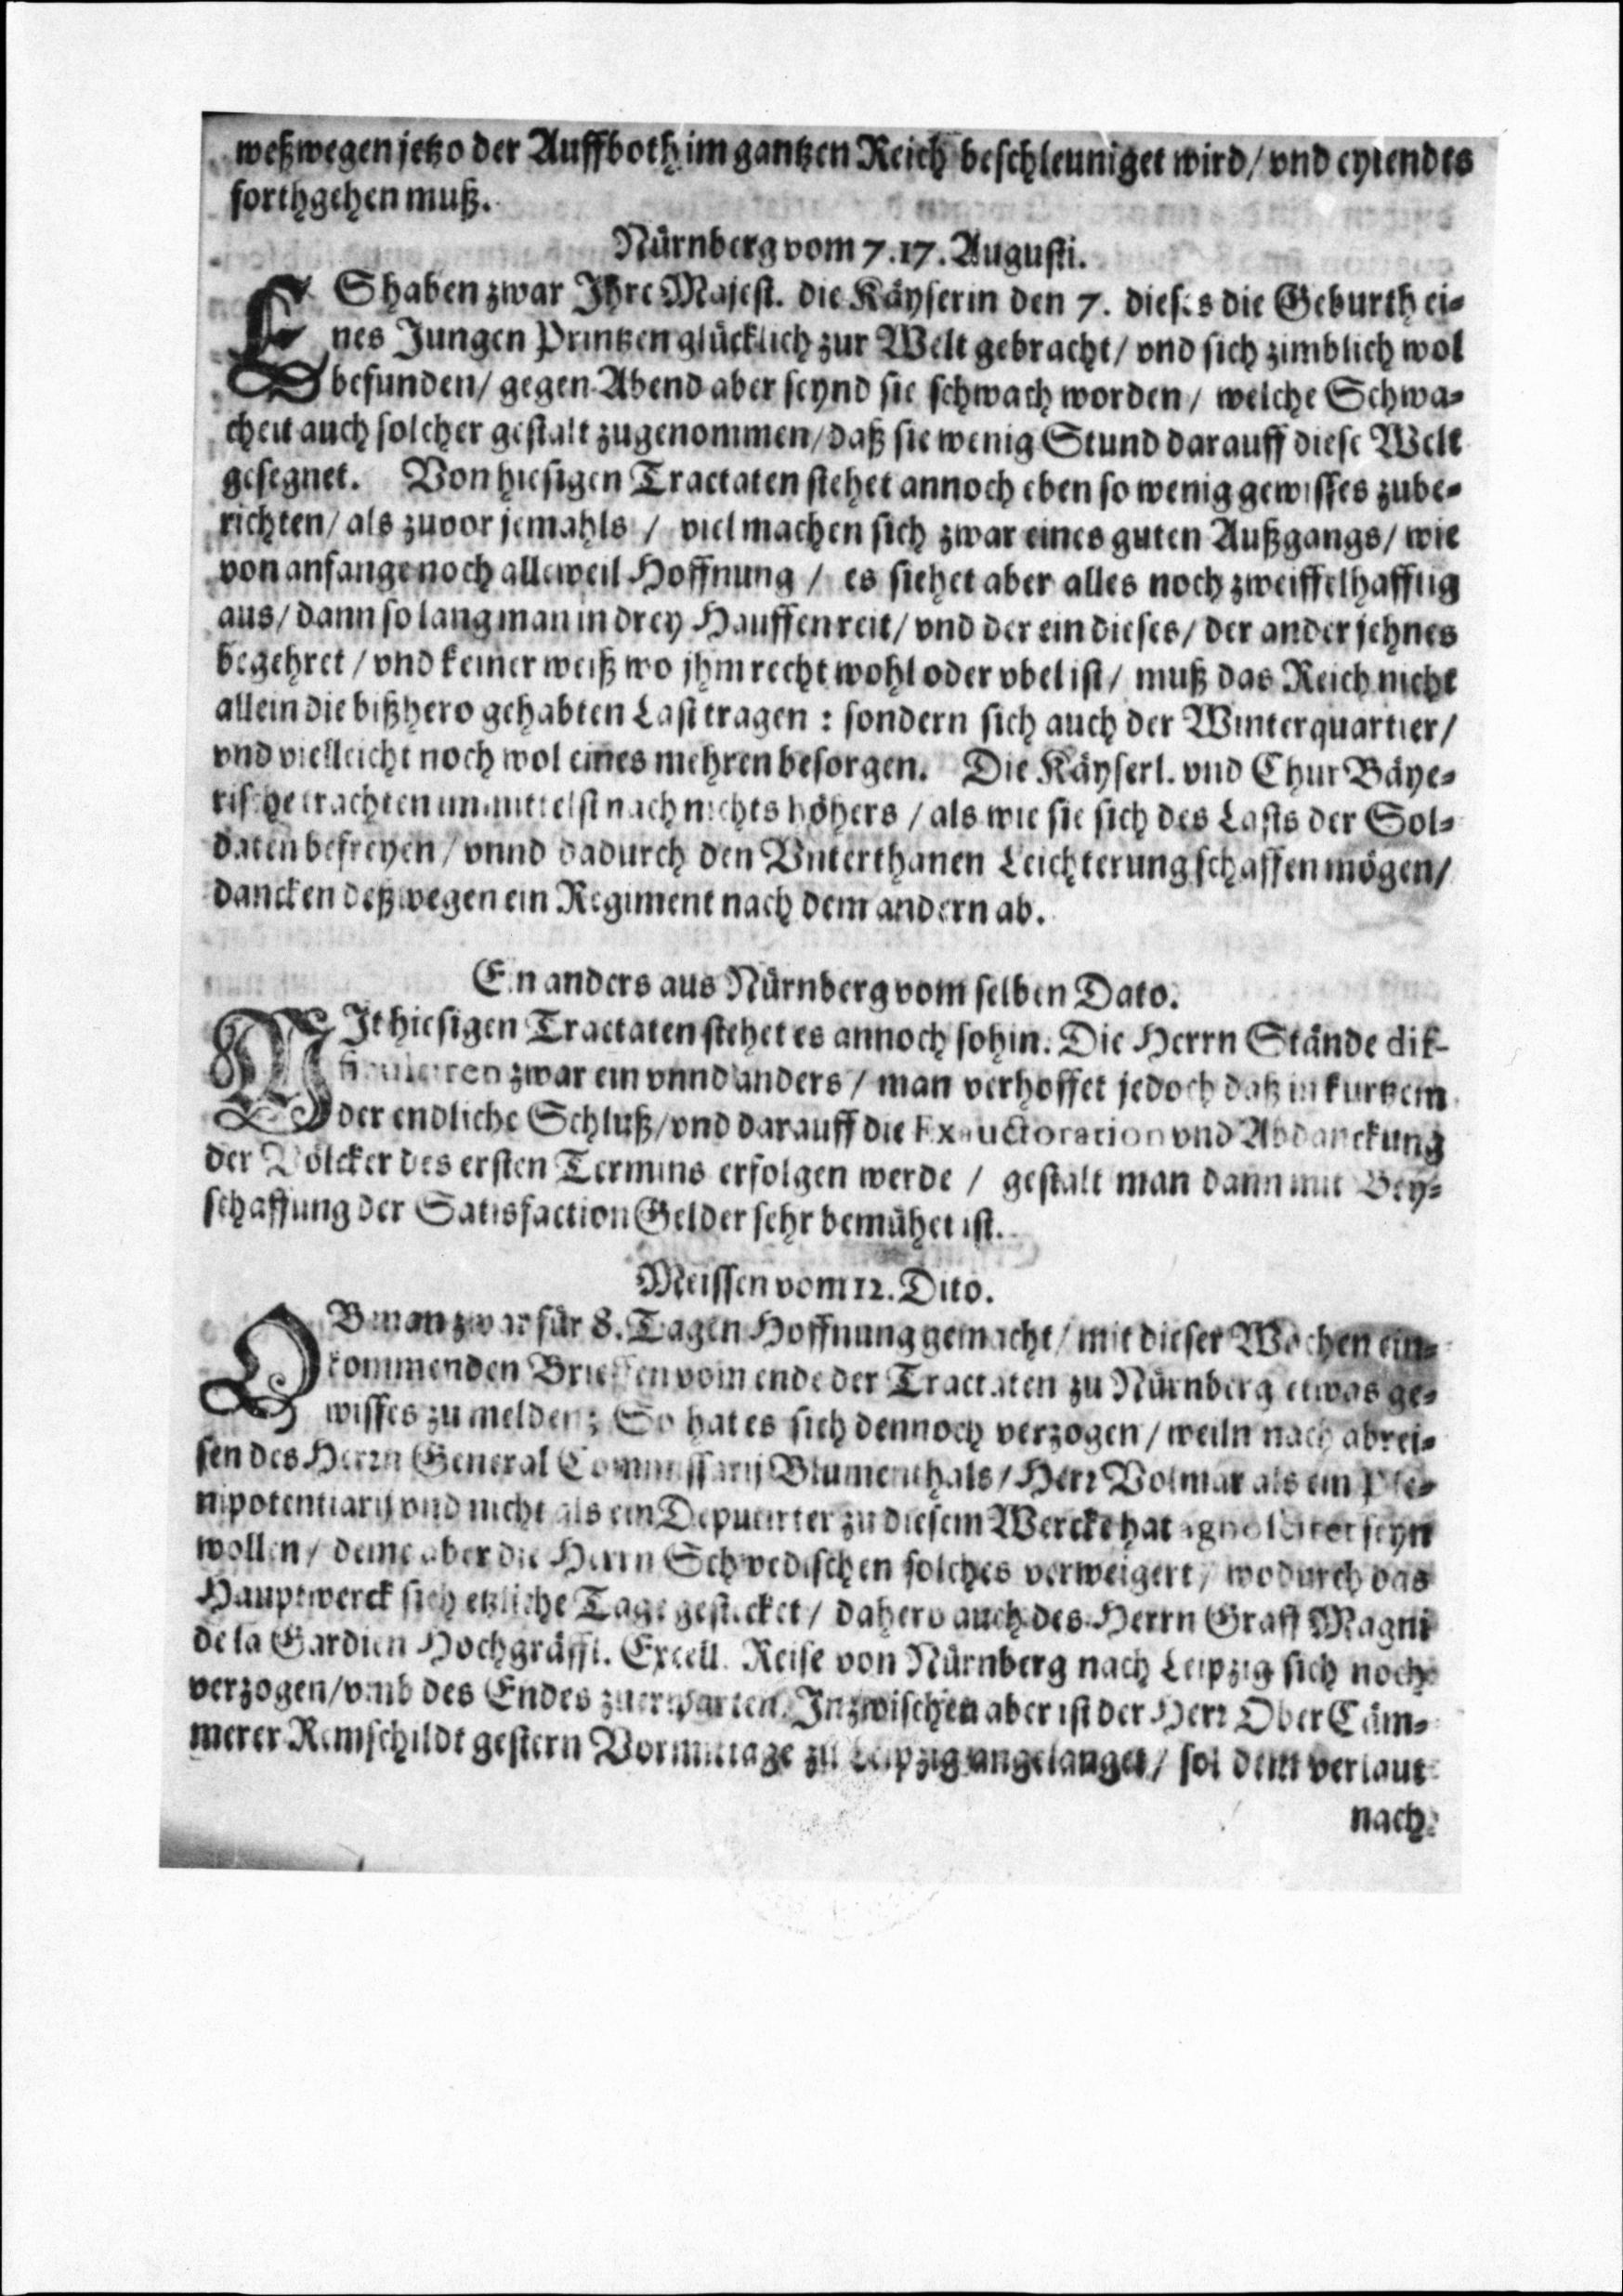 weßwegen jetzo der Auffboth im gantzen Reich beschleuniget wird / vnd eylendts
forthgehen muß.
Nürnberg vom 7. 17. Augusti.
ES haben zwar Ihre Majest. die Käyserin den 7. dieses die Geburth ei-
nes Jungen Printzen glücklich zur Welt gebracht / vnd sich zimblich wol
befunden / gegen Abend aber seynd sie schwach worden / welche Schwa-
cheit auch solcher gestalt zugenommen / daß sie wenig Stund darauff diese Welt
gesegnet. Von hiesigen Tractaten stehet annoch eben so wenig gewisses zube-
richten / als zuvor jemahls / viel machen sich zwar eines guten Außgangs / wie
von anfange noch alleweil Hoffnung / es siehet aber alles noch zweiffelhafftig
aus / dann so lang man in drey Hauffen reit / vnd der ein dieses / der ander jehnes
begehret / vnd keiner weiß wo jhm recht wohl oder vbel ist / muß das Reich nicht
allein die bißhero gehabten Last tragen : sondern sich auch der Winterquartier /
vnd vielleicht noch wol eines mehren besorgen. Die Käyserl. vnd Chur Bäye-
rische trachten immittelst nach nichts höhers / als wie sie sich des Lasts der Sol-
daten befreyen / vnnd dadurch den Vnterthanen Leichterung schaffen mögen /
dancken deßwegen ein Regiment nach dem andern ab.
Ein anders aus Nürnberg vom selben Dato.
MIt hiesigen Tractaten stehet es annoch sohin. Die Herrn Stände dis-
simuleiren zwar ein vnnd anders / man verhoffet jedoch daß in kurtzem
der endliche Schluß / vnd darauff die Exauctoration vnd Abdanckung
der Völcker des ersten Termins erfolgen werde / gestalt man dann mit Bey-
schaffung der Satisfaction Gelder sehr bemühet ist.
Meissen vom 12. Dito.
OB man zwar für 8. Tagen Hoffnung gemacht / mit dieser Wochen ein-
kommenden Brieffen vom ende der Tractaten zu Nürnberg etwas ge-
wisses zu melden ; So hat es sich dennoch verzogen / weiln nach abrei-
sen des Herrn General Commissarij Blumenthals / Herr Volmar als ein Ple-
nipotentiarij vnd nicht als ein Deputirter zu diesem Wercke hat agnosciret seyn
wollen / deme aber die Herrn Schwedischen solches verweigert / wodurch das
Hauptwerck sich etzliche Tage gestecket / dahero auch des Herrn Graff Magni
de la Gardien Hochgräffl. Excell. Reise von Nürnberg nach Leipzig sich noch
verzogen / vmb des Endes zuerwarten. Inzwischen aber ist der Herr Ober Cäm-
merer Remschildt gestern Vormittage zu Leipzig angelanget / sol dem verlaut
nach